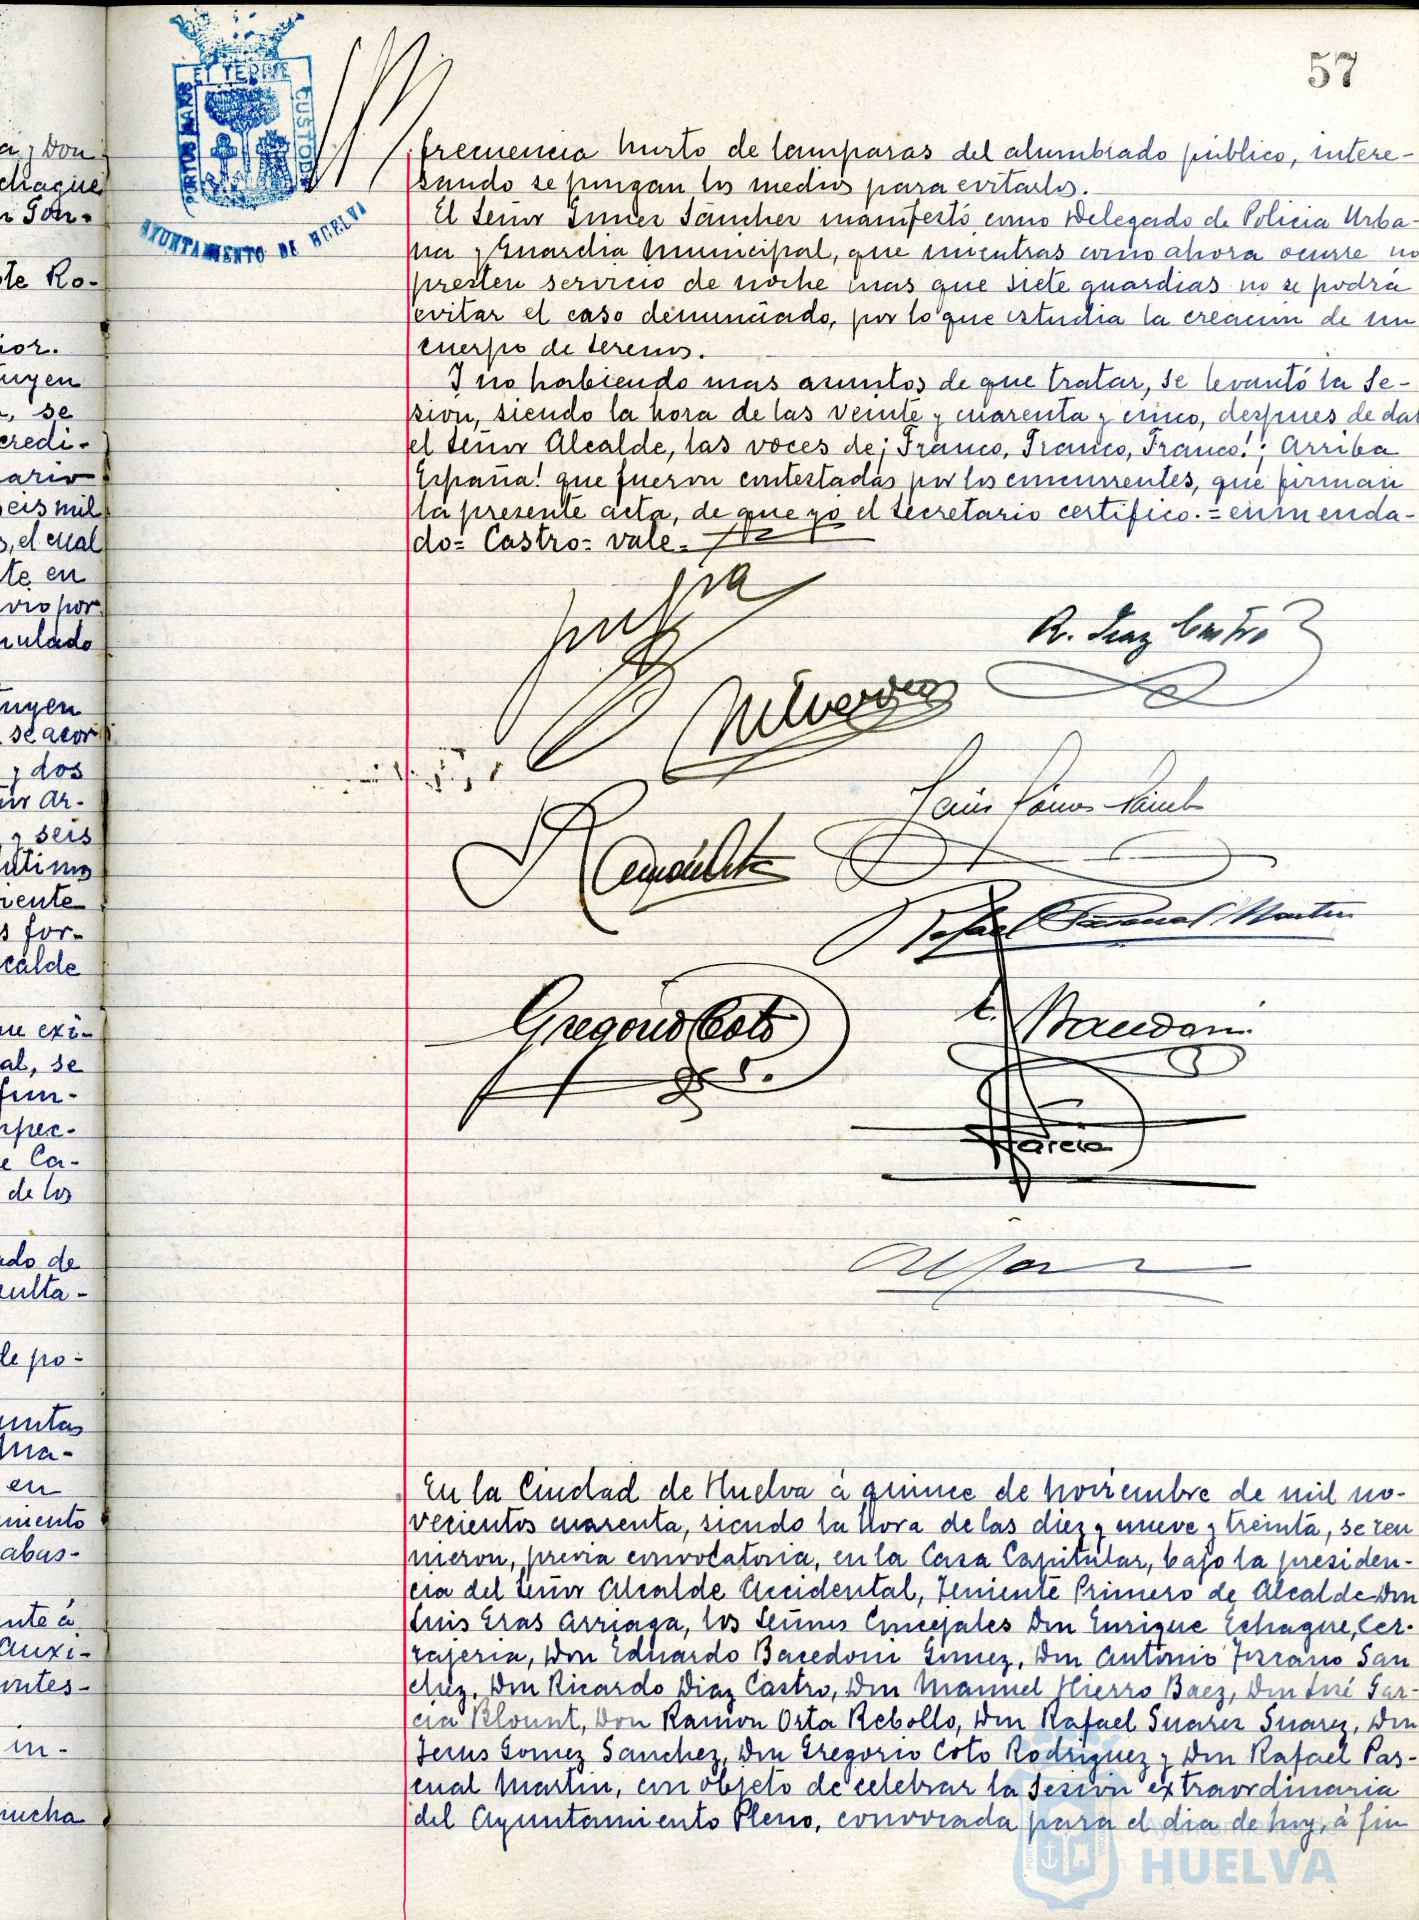 57
PORTUS MARIS
ET TERRE
CUSTODIA
AYUNTAMIENTO DE HUELVA
a y Don
chague
n Gon-
te Ro-
ior.
uyen
, se
credi-
ario
seis mil
s, el cual
te en
vio por
nulado
tuyen
se acor
y dos
ñor Ar-
y seis
ultimo
riente
s for-
calde
ue exi-
al, se
fun-
spec-
e Ca-
de los
ado de
sulta-
de po-
untas
en
amiento
abas-
nte á
auxi-
ontes-
in-
mucha
frecuencia hurto de lamparas del alumbrado público, intere-
sando se pongan los medios para evitarlos.
El Señor Gomez Sánchez manifestó como Delegado de Policia Urba-
na y Guardia Municipal, que mientras como ahora ocurre no
presten servicio de noche mas que siete guardias no se podrá
evitar el caso denunciado, por lo que estudia la creacion de un
cuerpo de serenos.
Y no habiendo mas asuntos de que tratar, se levantó la Se-
sion, siendo la hora de las veinte y cuarenta y cinco, despues de dar
el Señor Alcalde, las voces de ¡Franco, Franco, Franco! ¡Arriba
España! que fueron contestadas por los concurrentes, que firman
la presente acta, de que yo el secretario certifico.=enmenda-
do= Castro= vale.=
R. Diaz Castro
Ramón Orta
Jesús Gómez Sánch
Rafael Pascual Martin
Gregorio Coto
E. Bacedoni
Garcia
En la Ciudad de Huelva á quince de noviembre de mil no-
vecientos cuarenta, siendo la hora de las diez y nueve y treinta, se reu
nieron, previa convocatoria, en la Casa Capitular, bajo la presiden-
cia del Señor Alcalde Accidental, Teniente Primero de Alcalde Don
Luis Eras Arriaga, los Señores Concejales Don Enrique Echague, Cer-
rajeria, Don Eduardo Bacedoni Gomez, Don Antonio Jurado San
chez, Don Ricardo Diaz Castro, Don Manuel Hierro Baez, Don José Gar-
cia Blount, Don Ramon Orta Rebollo, Don Rafael Suarez Suarez, Don
Jesus Gomez Sanchez, Don Gregorio Coto Rodriguez y Don Rafael Pas-
cual Martin, con objeto de celebrar la Sesion extraordinaria
del Ayuntamiento Pleno, convocada para el dia de hoy, á fin
Ayuntamiento de
HUELVA